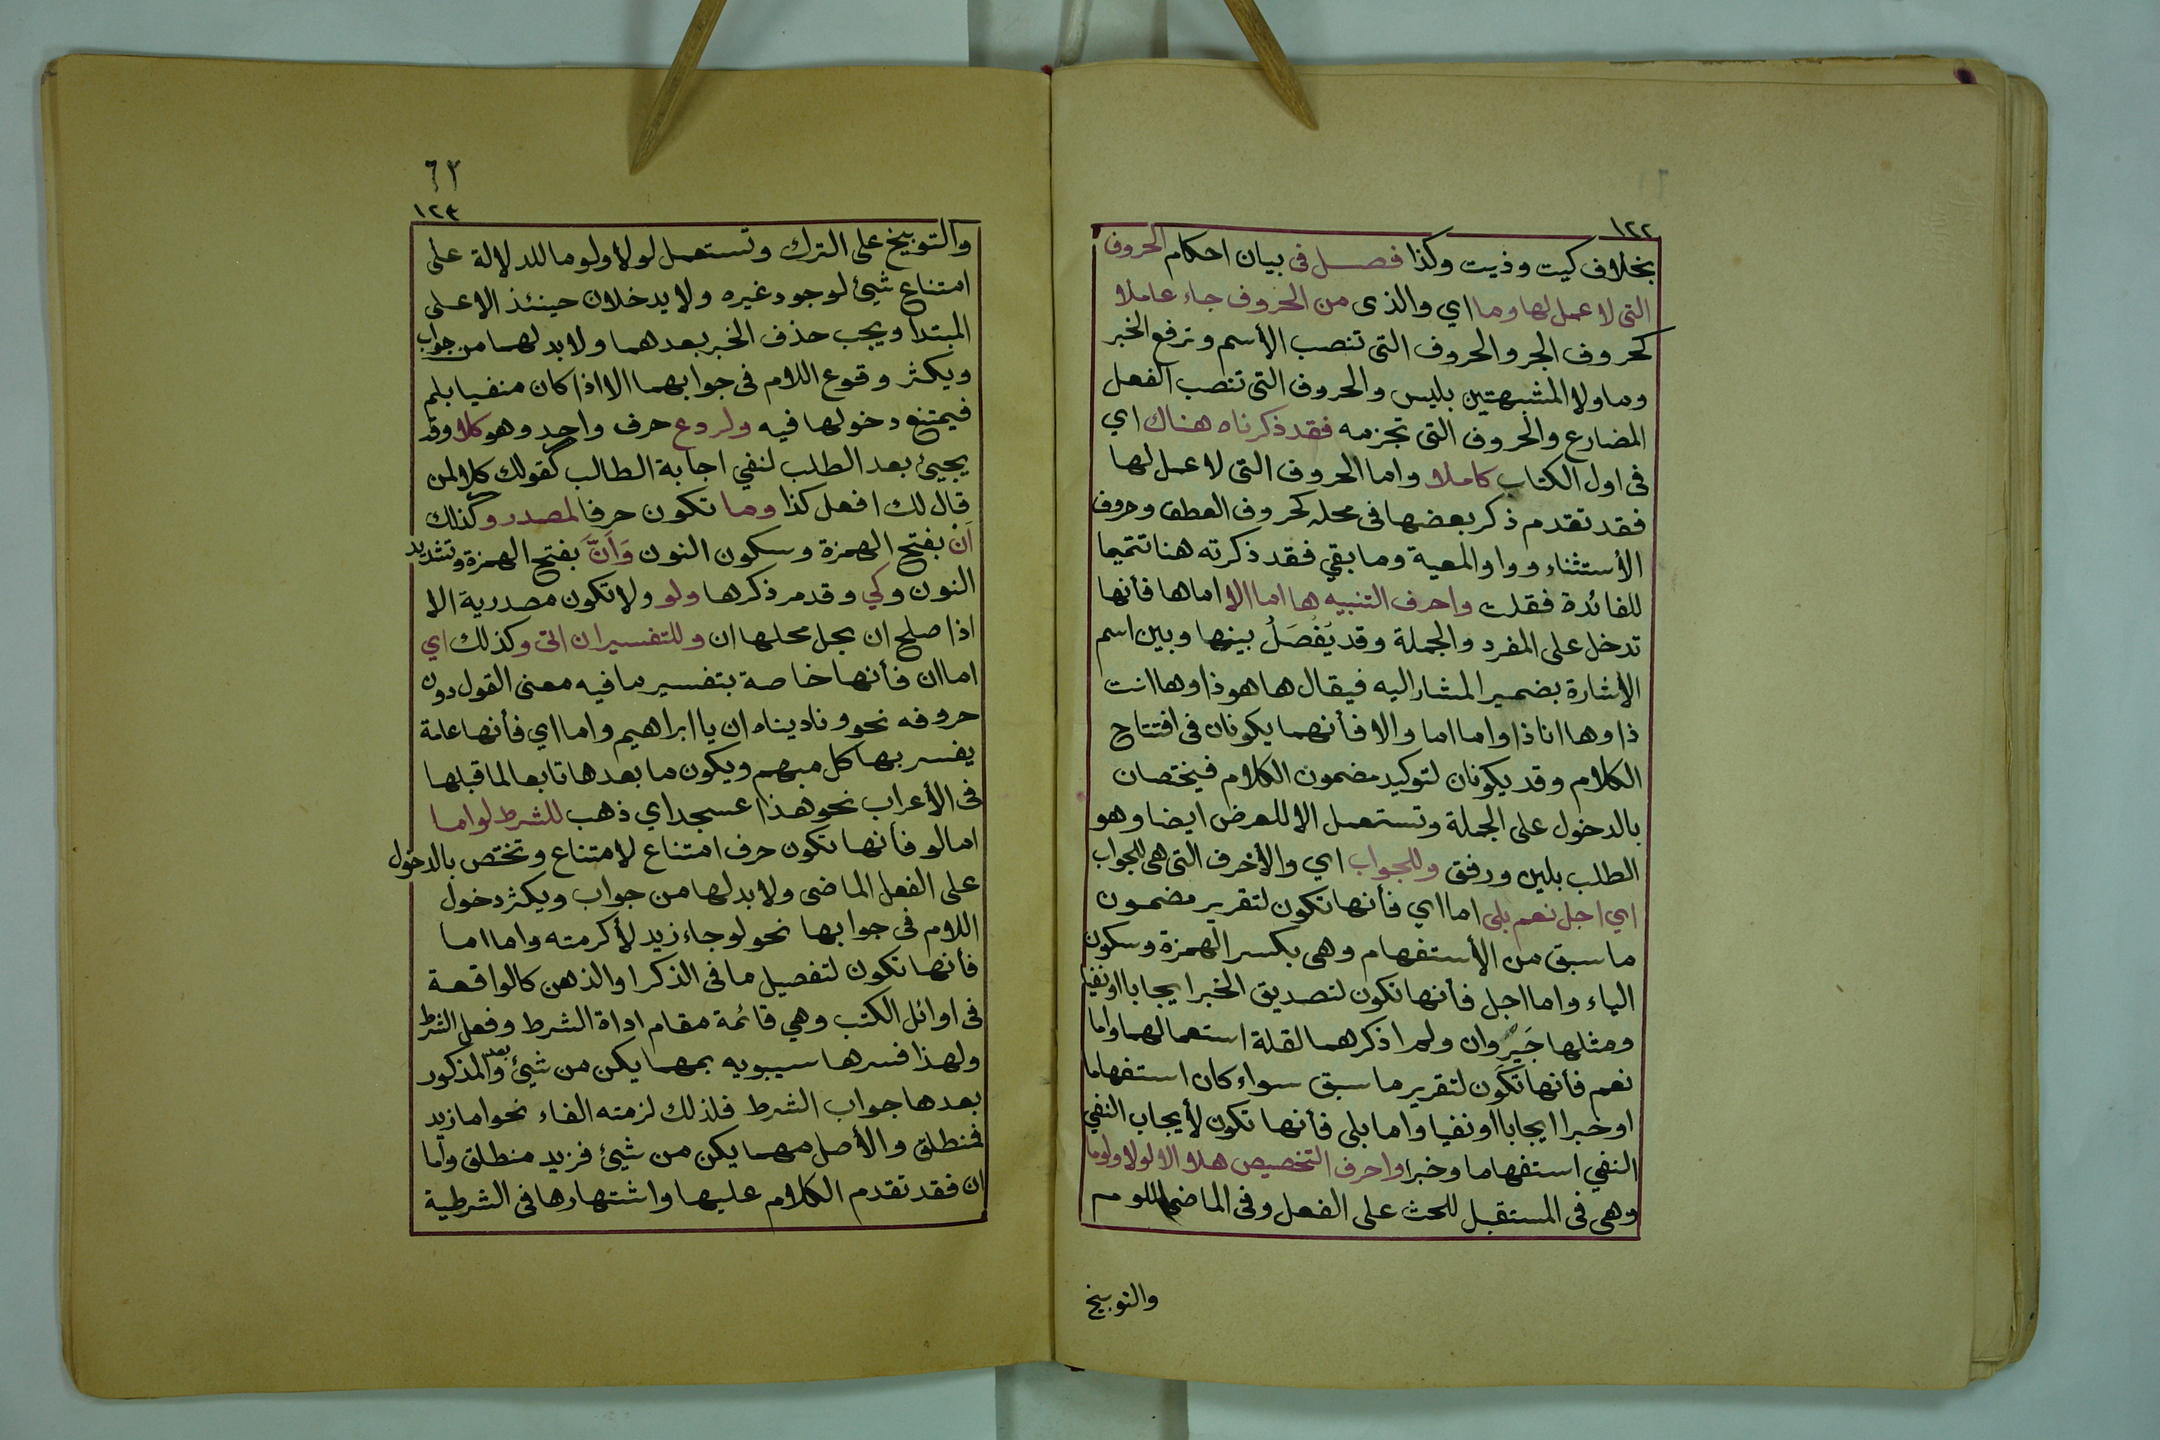 ١٢٢
بخلاف كيت وذيت وكذا فصل فى بيان احكام الحروف
التى لا عمل لها وما اي والذى من الحروف جاء عاملا
كحروف الجر والحروف التى تنصب الأسم وترفع الخبر
وما ولا المشبهتين بليس والحروف التى تنصب الفعل
المضارع والحروف التى تجزمه فقد ذكرناه هناك اي
فى اول الكتاب كاملا واما الحروف التى لا عمل لها
فقد تقدم ذكر بعضها فى محله كحروف العطف وحروف
الأستثناء وواو المعية وما بقي فقد ذكرته هنا تتميما
للفائدة فقلت واحرف التنبيه ها اما الا اما ها فأنها
تدخل على المفرد والجملة وقد يَفْصَلُ بينها وبين اسم
الأشارة بضمير المشار اليه فيقال ها هو ذا وها انت
ذا وها انا ذا واما اما والا فأنهما يكونان فى افتتاح
الكلام وقد يكونان لتوكيد مضمون الكلام فيختصان
بالدخول على الجملة وتستعمل الا للعرض ايضا وهو
الطلب بلين ورفق وللجواب اي والأخرف التى هى للجواب
اي اجل نعم بلى اما اي فأنها تكون لتقرير مضمون
ما سبق من الأستفهام وهى بكسر الهمزة وسكون
الياء واما اجل فأنها تكون لتصديق الخبر ايجابا او نفيا
ومثلها جَيْرِ وان ولم اذكرهما لقلة استعمالهما واما
نعم فأنها تكون لتقرير ما سبق سواء كان استفهاما
او خبرا ايجابا او نفيا واما بلى فأنها تكون لأيجاب النفي
النفي استفهاما وخبرا واحرف التخصيص هلا الا لولا ولوما
وهى فى المستقبل للحث على الفعل وفى الماضى للوم
والتوبيخ
٦٢
١٢٣
والتوبيخ على الترك وتستعمل لولا ولوما للدلالة على
امتناع شيئ لوجود غيره ولا يدخلان حينئذ الا على
المبتدأ ويجب حذف الخبر بعدهما ولا بد لهما من جواب
ويكثر وقوع اللام فى جوابهما الا اذا كان منفيا بلم
فيمتنع دخولها فيه ولردع حرف واحد وهو كلا وقد
يجيئ بعد الطلب لنفي اجابة الطالب كقولك كلا لمن
قال لك افعل كذا وما تكون حرفا لمصدر وكذلك
اَنْ بفتح الهمزة وسكون النون وَاَنَّ بفتح الهمزة وتشديد
النون وكي وقد مر ذكرها ولو ولا تكون مصدرية الا
اذا صلح ان يحل محلها ان وللتفسير ان اتى وكذلك اي
اما ان فأنها خاصة بتفسير ما فيه معنى القول دون
حروفه نحو وناديناه ان يا ابراهيم واما اي فأنها عامة
يفسر بها كل مبهم ويكون ما بعدها تابعا لما قبلها
فى الأعراب نحو هذا عسجد اي ذهب للشرط لو اما
اما لو فأنها تكون حرف امتناع لامتناع وتختص بالدخول
على الفعل الماضى ولا بد لها من جواب ويكثر دخول
اللام فى جوابها نحو لو جاء زيد لأكرمته واما اما
فأنها تكون لتفصيل ما فى الذكر او الذهن كالواقعة
فى اوائل الكتب وهي قائمة مقام اداة الشرط وفعل الشرط
ولهذا فسرها سيبويه بمهما يكن من شيئ بعد والمذكور
بعدها جواب الشرط فلذلك لزمته الفاء نحو اما زيد
فمنطلق والأصل مهما يكن من شيئ فزيد منطلق وأما
ان فقد تقدم الكلام عليها واشتهارها فى الشرطية